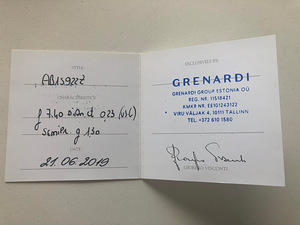 STYLE
AB15922Z
CHARACTERISTICS
g 7.40 diam ct 0.23 (n36)
g 1.30
DATE
21.06.2019
EXCLUSIVELY BY
GRENARDI
GRENARDI GROUP ESTONIA OÜ
REG. NR. 11518421
KMKR NR. EE101243122
VIRU VÄLJAK 4, 10111 TALLINN
TEL. +372 610 1580
GIORGIO VISCONTI